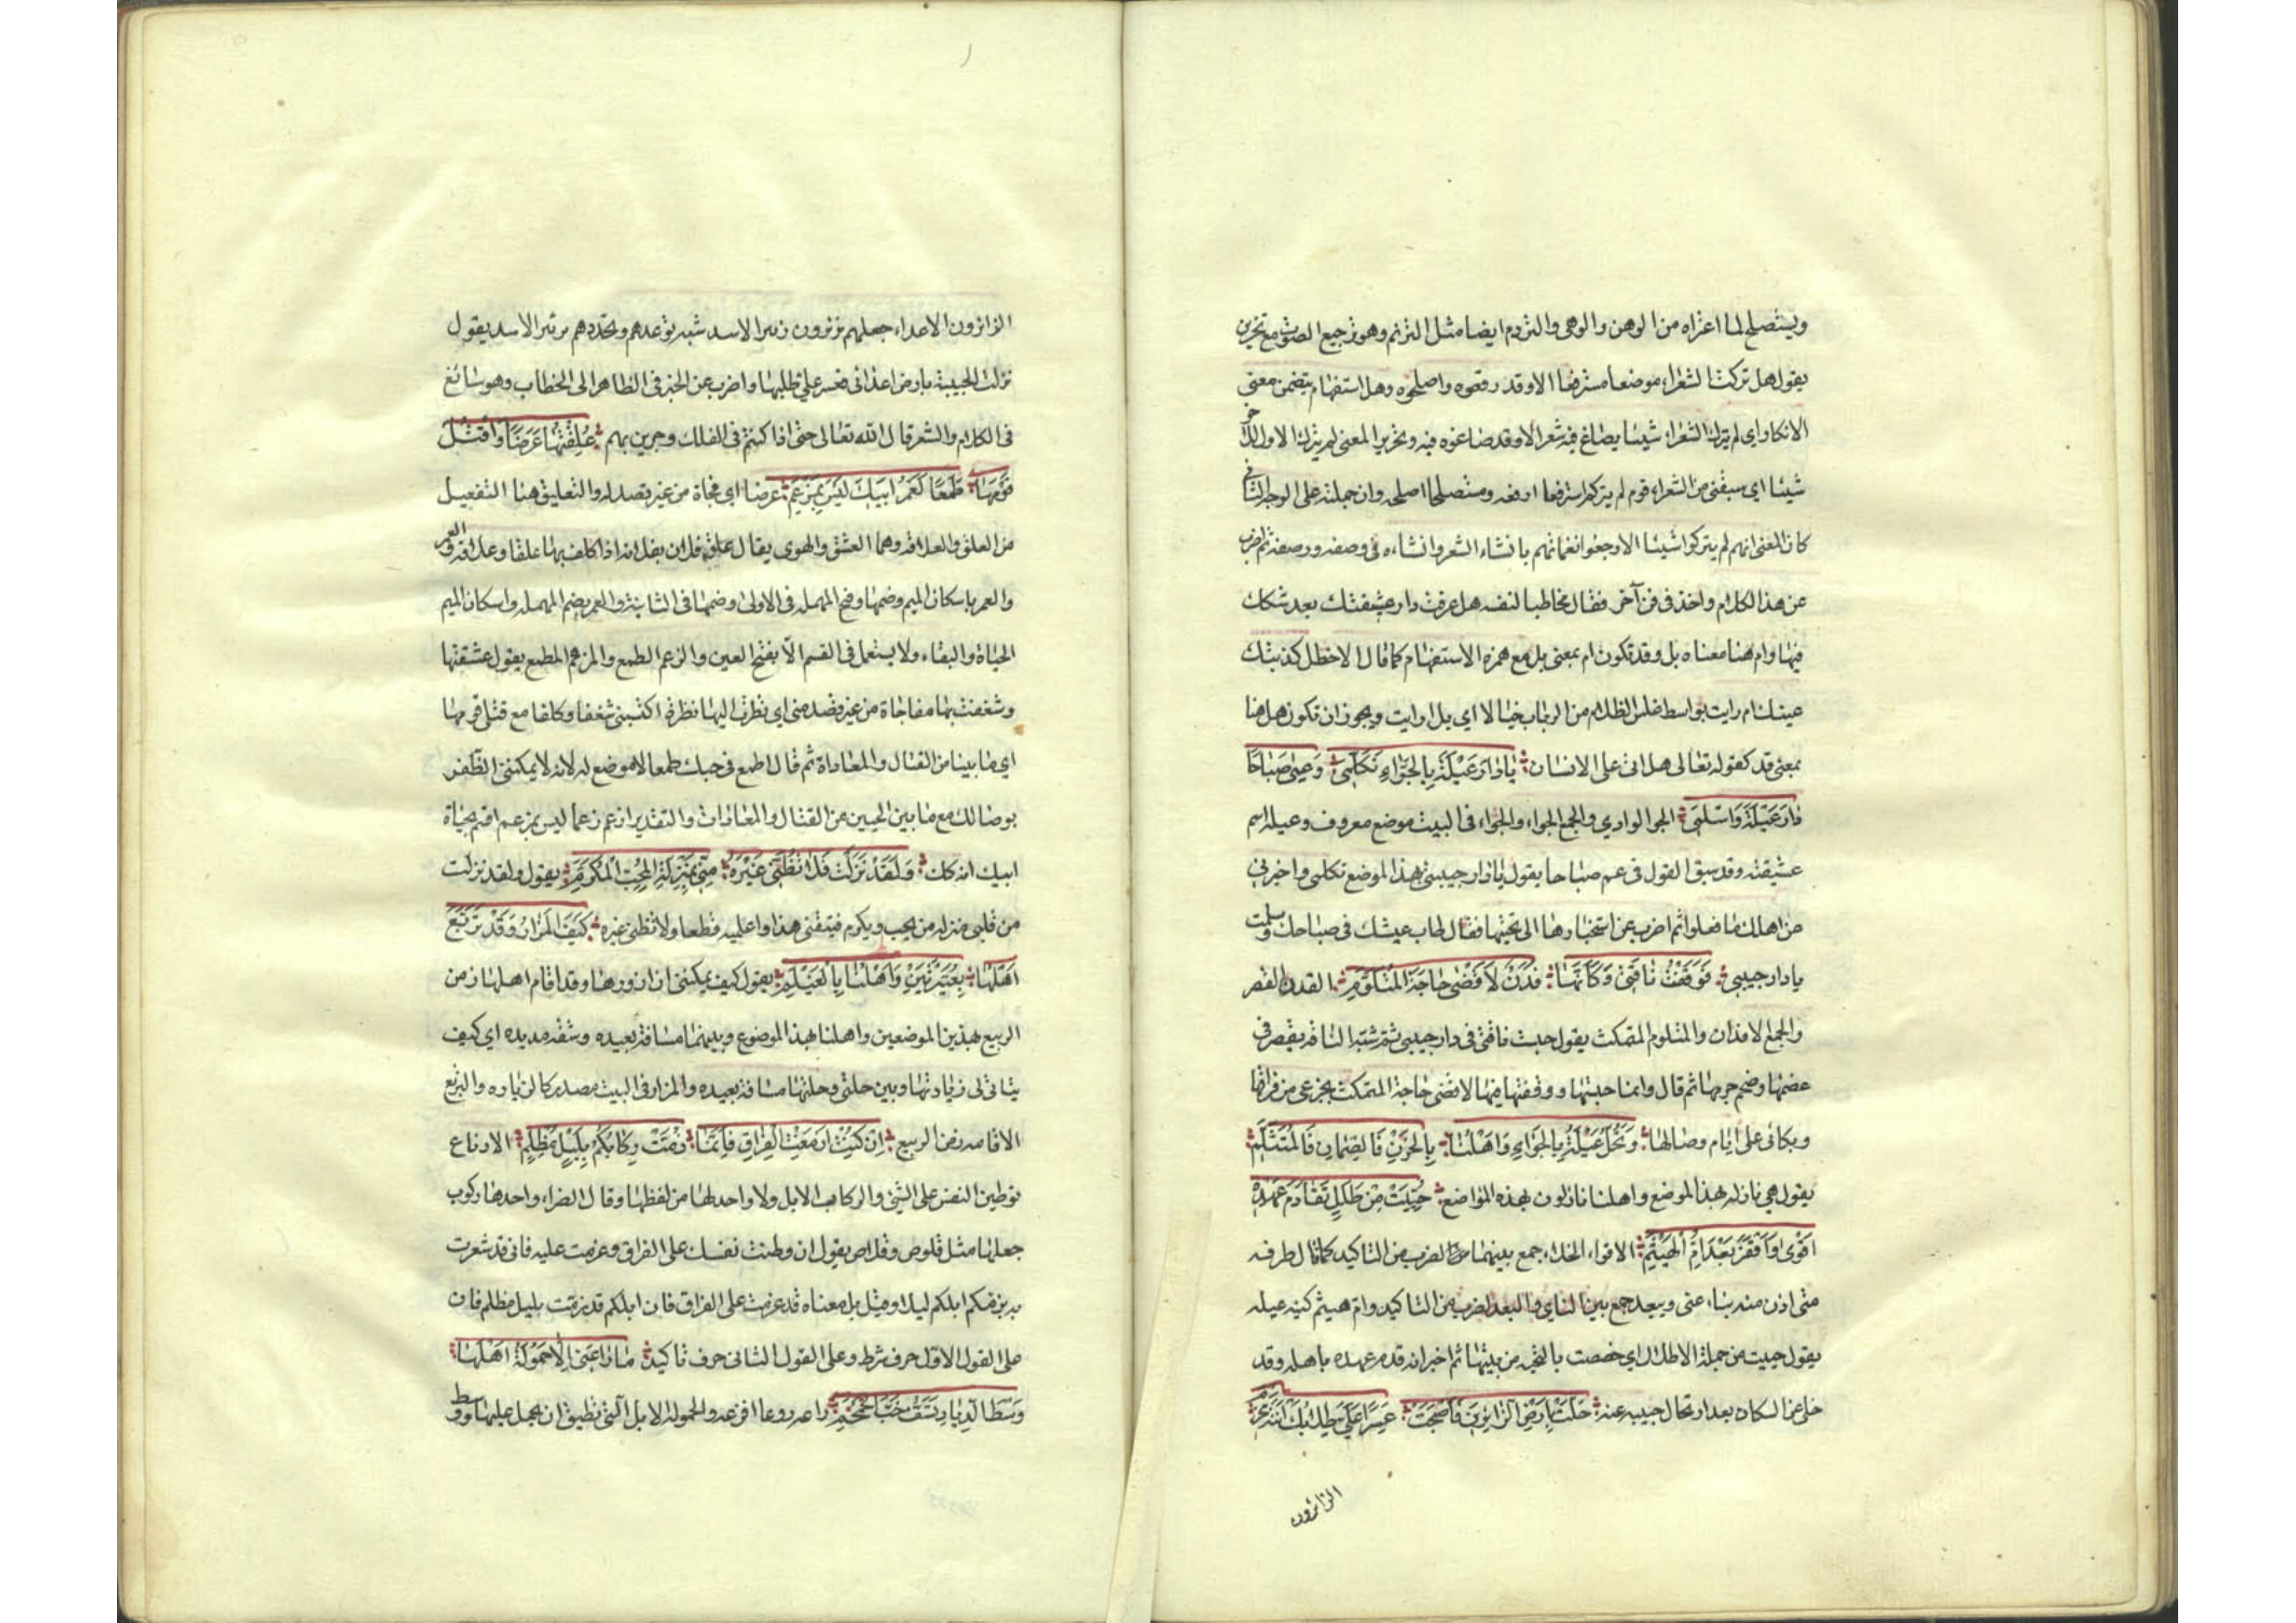 ويستصلح لما اعتراه من الوهن والوهى والتردم ايضا مثل الترنم وهو ترجيع الصوت مع تحزين
يقول هل تركت الشعراء موضعا مسترقعا الا وقد رقعوه واصلحوه وهل استفهام يتضمن معنى
الانكار اي لم يترك الشعراء شيئا يصاغ فيه شعر الا وقد صاغوه فيه وتحرير المعنى لم يترك الاول للآخر
شيئا اي سبقنى من الشعراء قوم لم يتركوا مسترقعا الا رقعوه ومستصلحا اصلحوه وان حملته على الوجه الثانى
كان المعنى انهم لم يتركوا شيئا الا رجعوا نغماتهم بانشاء الشعر وانشاءه فى وصفه ورصفه ثم اضرب
عن هذا الكلام واخذ فى فن آخر فقال مخاطبا لنفسه هل عرفت دار عشيقتك بعد شكك
فيها وام هنا معناه بل وقد تكون ام بمعنى بل مع همزه الاستفهام كما قال الاخطل كذبتك
عينك ام رايت بواسط غلس الظلام من الرباب خيالا اي بل ارايت ويجوز ان تكون هل هنا
بمعنى قد كقوله تعالى هل اتى على الانسان يَا دَارَ عَبْلَةَ بِالجَوَاءِ تَكَلَّمِى وَعِمِى صَبَاحًا
دَارَ عَبْلَةَ وَاسْلَمِى الجو الوادي والجمع الجواء والجواء فى البيت موضع معروف وعبله اسم
عشيقته وقد سبق القول فى عم صباحا يقول يا دار حبيبتى بهذا الموضع تكلمى واخبرني
من اهلك ما فعلوا ثم اضرب عن استخبارها الى تحيتها فقال طاب عيشك فى صباحك وسلمت
يا دار حبيبى فَوَقَفْتُ نَاقَتِى وَكَأَنَّهَا فَدَنٌ لَاقْضِى حَاجَةَ المُتَلَوِّمِ الفدن القصر
والجمع الافدان والمتلوم المتمكث يقول حبست ناقتى فى دار حبيبى ثم شبه الناقه بقصر فى
عضمها وضخم جرمها ثم قال وانما حبستها ووقفتها فيها لاقضى حاجة المتمكث بجزعى من فراقها
وبكائى على ايام وصالها وَتَحُلُّ عَبْلَةُ بِالجَوَاءِ وَاَهْلُنَا بِالحَزْنِ فَالصَّمَانِ فَالمُتَثَلَّمِ
يقول هى نازله بهذا الموضع واهلنا نازلون بهذه المواضع حُيِّيتَ مِنْ طَلَلٍ تَقَادَمَ عَهْدُهُ
اَقْوَى وَاَقْفَرَ بَعْدَ اُمِّ الهَيْثَمِ الاقواء الخلاء جمع بينهما لضرب من التاكيد كما قال طرفه
متى ادن منه يناء عنى ويبعد جمع بين الناي والبعد لضرب من التاكيد وام هيثم كنيه عبله
يقول حييت من جملة الاطلال اي خصصت بالتحيه من بينها ثم اخبر انه قدم عهده باهله وقد
خلى عن السكان بعد ارتحال حبيبه عنه حَلَّتْ بِاَرْضِ الزَّائِرِينَ فَاَصْبَحَتْ عَسِرًا عَلَىَّ طِلَابُكَ ابْنَةَ مَخْرَمِ
الزائرون
الزائرون الاعداء جعلهم يزئرون زئير الاسد شبه توعدهم وتهددهم بزئير الاسد يقول
نزلت الحبيبة بارض اعدائى فعسر علي طلبها واضرب عن الخبر فى الظاهر الى الخطاب وهو سائغ
فى الكلام والشعر قال الله تعالى حتى اذا كنتم فى الفلك وجرين بهم عُلِّقْتُهَا عَرَضًا وَاَقْتُلُ
قَوْمَهَا طَمَعًا لَعَمْرُ اَبِيكَ لَيْسَ بِمَزْعَمِ عرضا اي فجاة من غير قصد له والتعليق هنا التفعيل
من العلق والعلاقه وهما العشق والهوى يقال علق فلان بفلانه اذا كلف بها علقا وعلاقه والعمر
والعمر باسكان الميم وضمها وفتح المهمله فى الاولى وضمها فى الثانيه والعمر بضم المهمله واسكان الميم
الحياة والبقاء ولا يستعمل فى القسم الا بفتح العين والزعم الطمع والمزعم المطمع يقول عشقتها
وشغفت بها مفاجاة من غير قصد منى اي نظرت اليها نظرة اكسبتنى شغفا وكلفا مع قتلى قومها
اي مع ما بيننا من القتال والمعاداة ثم قال اطمع فى حبك طمعا لا موضع له لانه لا يمكننى الظفر
بوصالك مع ما بين الحيين من القتال والمعادات والتقدير ازعم زعما ليس بمزعم اقسم بحياة
ابيك انه كك وَلَقَدْ نَزَلْتِ فَلَا تَظُنِّى غَيْرَهُ مِنِّى بِمَنْزِلَةِ المُحِبِّ المُكْرَمِ يقول ولقد نزلت
من قلبى منزله من يحب ويكرم فتيقنى هذا واعلميه قطعا ولا تظنى غيره كَيْفَ المَزَارُ وَقَدْ تَرَبَّعَ
اَهْلُهَا بِعُنَيْزَتَيْنِ وَاَهْلُنَا بِالغَيْلَمِ يقول كيف يمكننى ان ازورها وقد اقام اهلها زمن
الربيع بهذين الموضعين واهلنا بهذا الموضوع وبينهما مسافة بعيده وشقه مديده اي كيف
يتاتى لى زيارتها وبين حلتى وحلتها مسافة بعيده والمزار فى البيت مصدر كالزياره والتربع
الاقامه زمن الربيع اِنْ كُنْتِ اَزْمَعْتِ الفِرَاقَ فَاِنَّمَا زُمَّتْ رِكَابُكُمُ بِلَيْلٍ مُظْلِمِ الازماع
توطين النفس على الشئ والركاب الابل ولا واحد لها من لفظها وقال الفراء واحدها ركوب
جعلها مثل قلوص وقلاص يقول ان وطنت نفسك على الفراق وعزمت عليه فانى قد شعرت
به بزمكم ابلكم ليلا وقيل بل معناه قد عزمت على الفراق فان ابلكم قد زمت بليل مظلم فان
على القول الاول حرف شرط وعلى القول الثانى حرف تاكيد مَا رَاعَنِى اِلَّا حَمُولَةُ اَهْلِهَا
وَسْطَ الدِّيَارِ تَسَفُّ حَبَّ الخِمْخِمِ راعه روعا افزعه والحموله الابل التى تطيق ان يحمل عليها ووسط